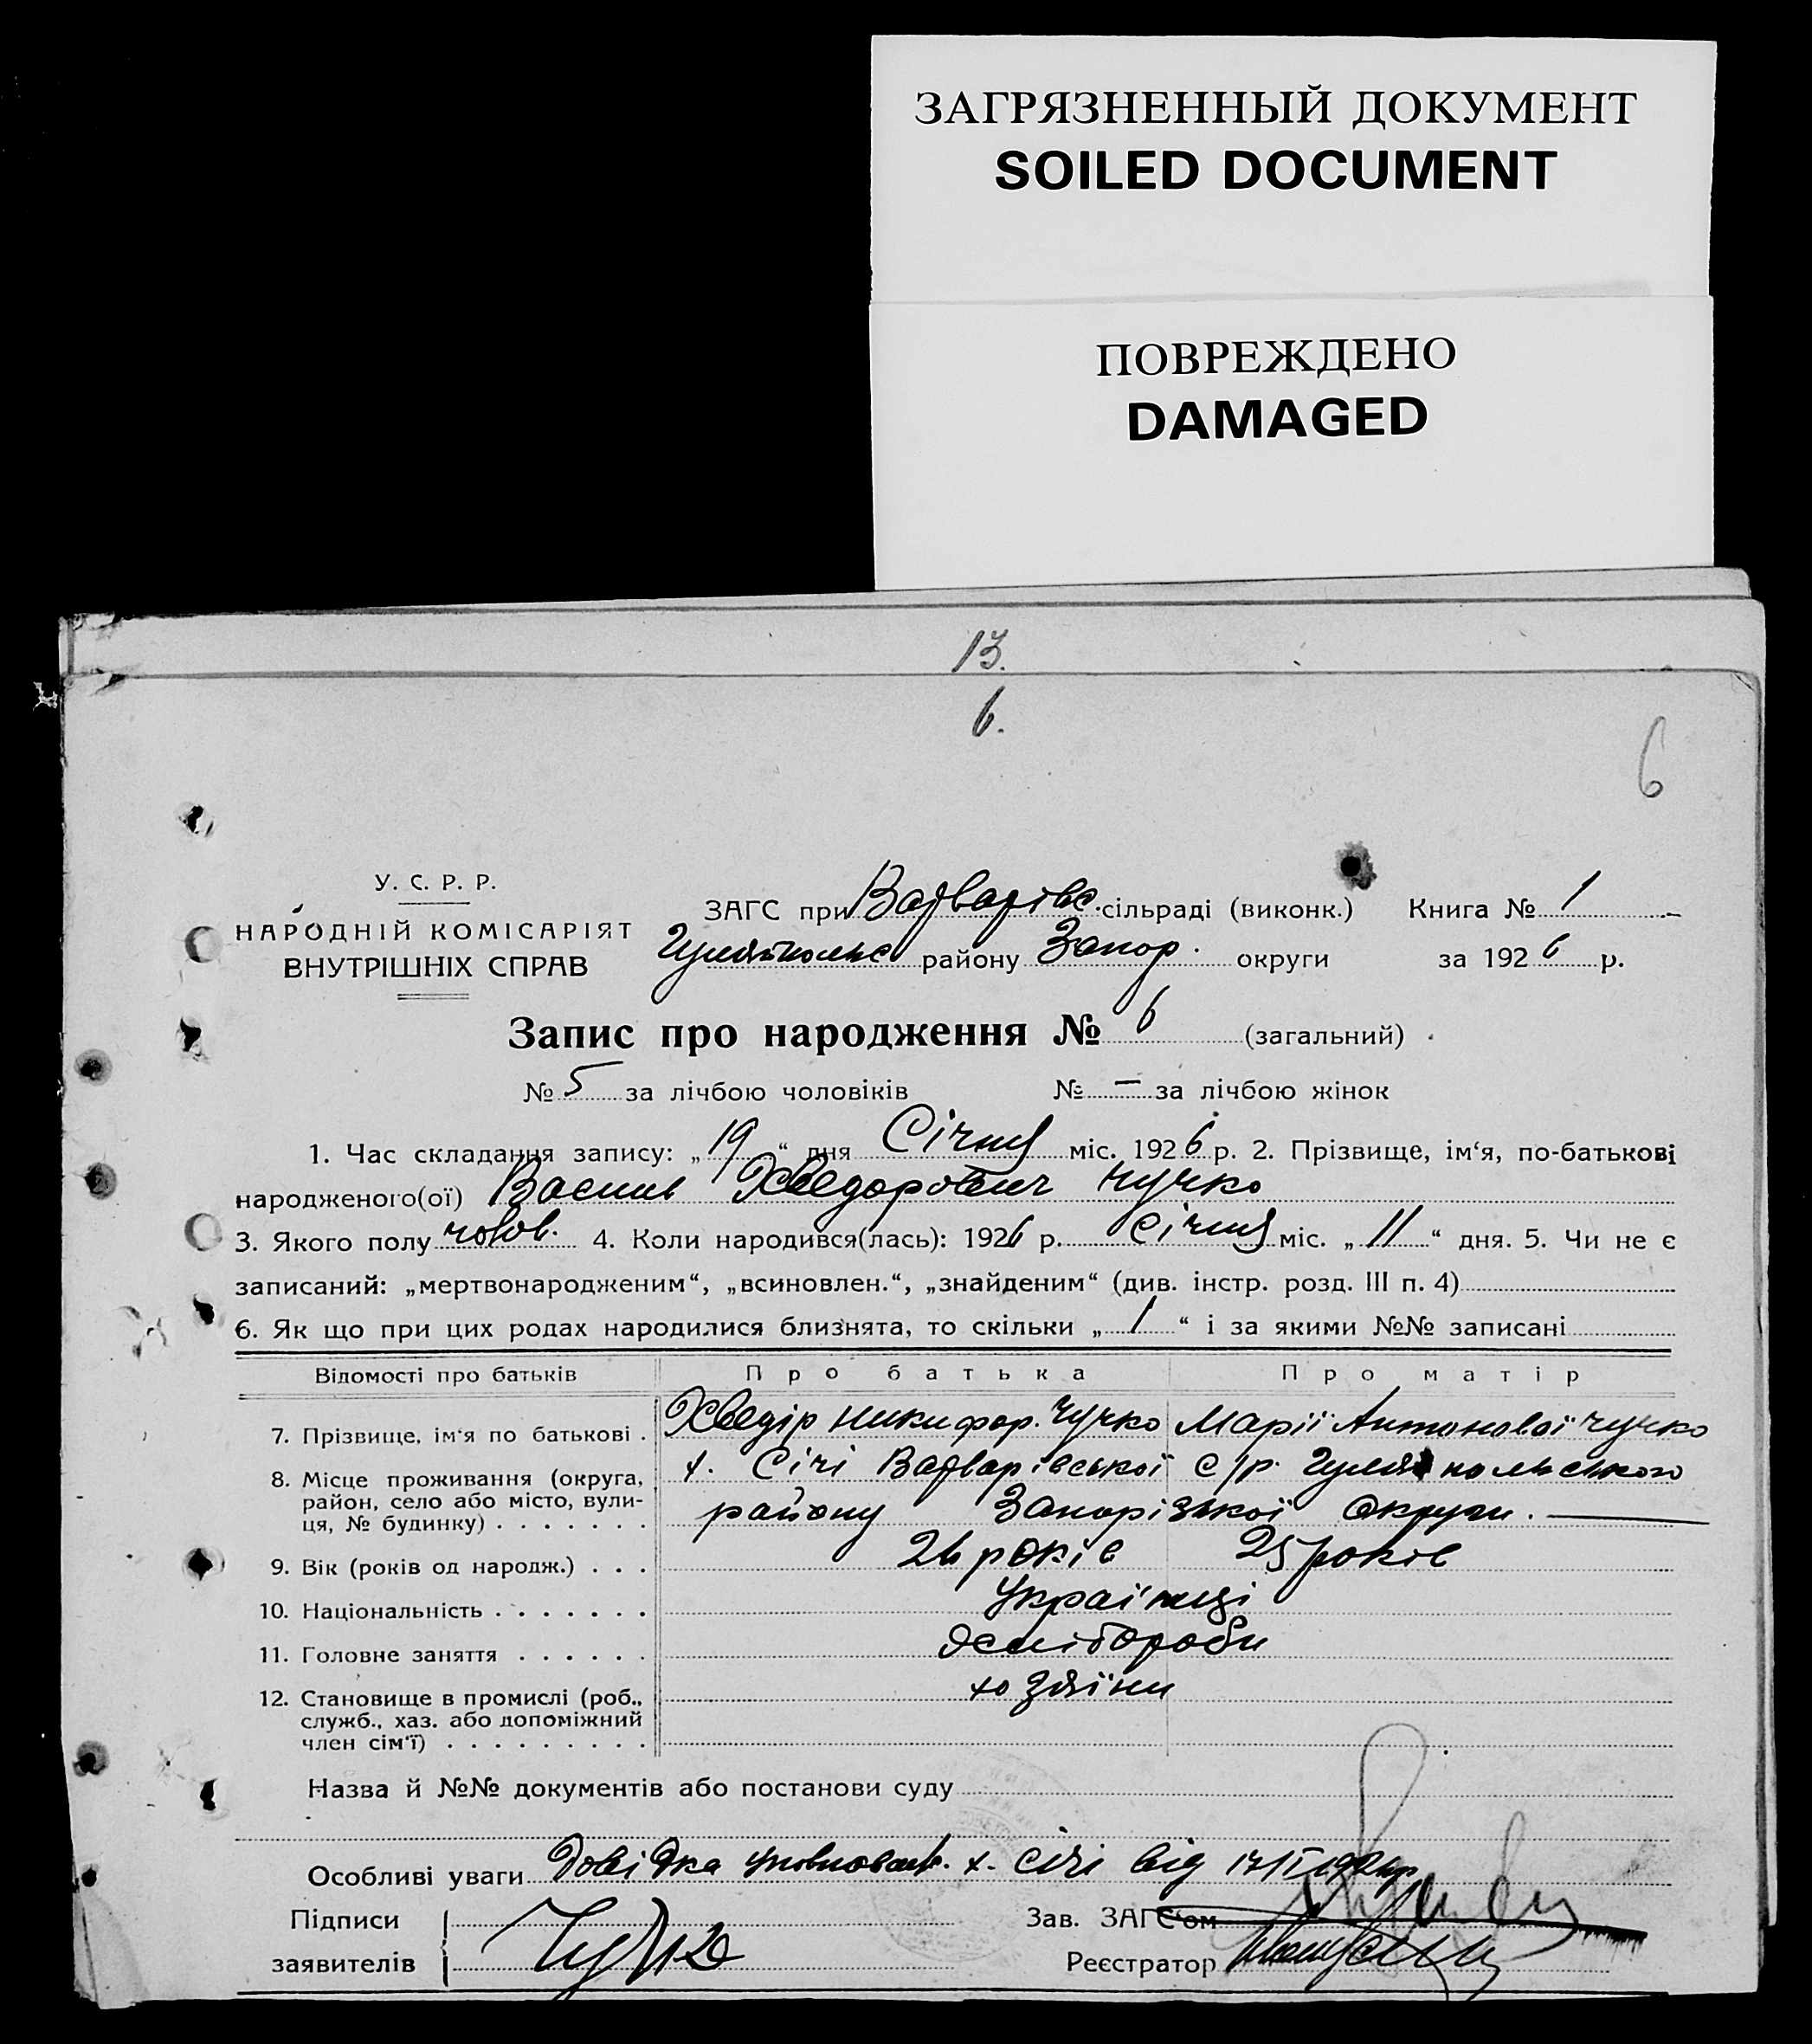 ЗАГРЯЗНЕННЫЙ ДОКУМЕНТ
SOILED DOCUMENT
ПОВРЕЖДЕНО
DAMAGED
13.
6.
6
У. С. Р. Р.
НАРОДНІЙ КОМІСАРІЯТ
ВНУТРІШНІХ СПРАВ
ЗАГС при Варварівс. сільраді (виконк.) Книга № 1
Гуляйпольс району Запор. округи за 1926 р.
Запис про народження № 6 (загальний)
№ 5 за лічбою чоловіків № — за лічбою жінок
1. Час складання запису: „19“ дня Січня міс. 1926 р. 2. Прізвище, ім'я, по-батькові
народженого(ої) Василь Хведорович Чучко
3. Якого полу чолов. 4. Коли народився(лась): 1926 р. Січня міс. „11“ дня. 5. Чи не є
записаний: „мертвонародженим“, „всиновлен.“, „знайденим“ (див. інстр. розд. III п. 4)
6. Як що при цих родах народилися близнята, то скільки „1“ і за якими №№ записані
Відомості про батьків Про батька Про матір
7. Прізвище, ім'я по батькові . Хведір Никифор. Чучко Марії Антонової Чучко
8. Місце проживання (округа, х. Січі Варварівської с/р. Гуляйпольського
район, село або місто, вули-
ця, № будинку) . . . . . . . району Запорізької округи. —
9. Вік (років од народж.) . . . 26 років 25 років
10. Національність . . . . . . . Українці
11. Головне заняття . . . . . . хлібороби
12. Становище в промислі (роб., хозяїни
служб., хаз. або допоміжний
член сім'ї) . . . . . . . . .
Назва й №№ документів або постанови суду
Особливі уваги Довідка уповноваж. х. Січі від
Підписи Зав. ЗАГС'ом
заявителів Чучко Реєстратор